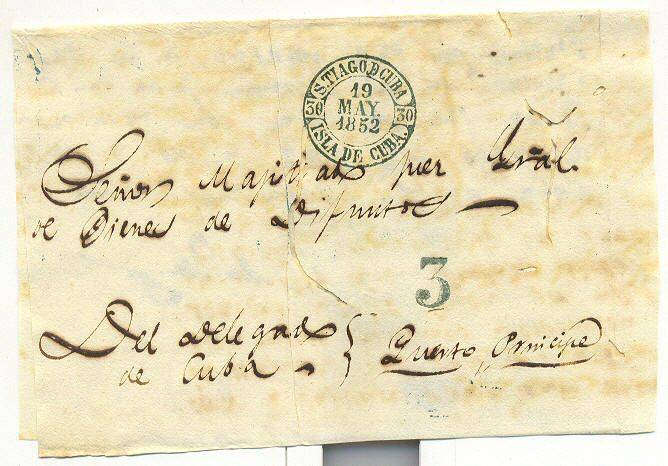 S. TIAGO. D CUBA
30 19 30
MAY.
1852
ISLA DE CUBA.
Señor Majistrado juez Gral.
de Bienes de Difuntos
3
Del Delegado
de Cuba
Puerto Principe